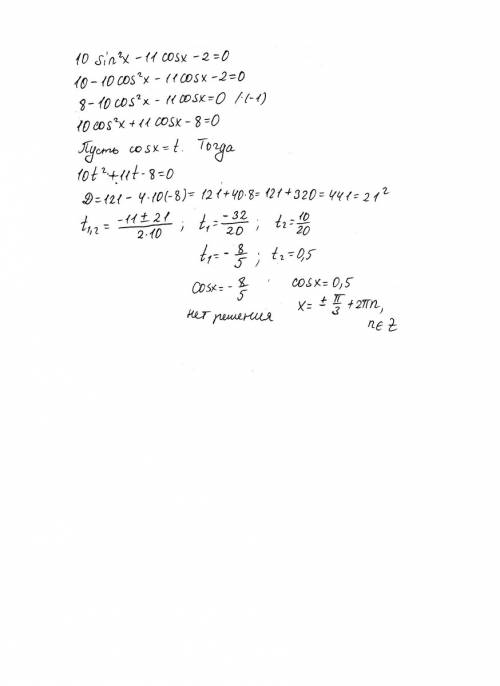 10 sin²x - 11 cosx - 2 = 0
10 - 10cos²x - 11cosx - 2 = 0
8 - 10cos²x - 11cosx = 0 /·(-1)
10cos²x + 11cosx - 8 = 0
Пусть cosx = t. Тогда
10t² + 11t - 8 = 0
D = 121 - 4·10(-8) = 121 + 40·8 = 121 + 320 = 441 = 21²
t₁,₂ = (-11 ± 21)/(2·10) ; t₁ = -32/20 ; t₂ = 10/20
t₁ = -8/5 ; t₂ = 0,5
cosx = -8/5 cosx = 0,5
нет решения x = ± π/3 + 2πn,
n∈Z